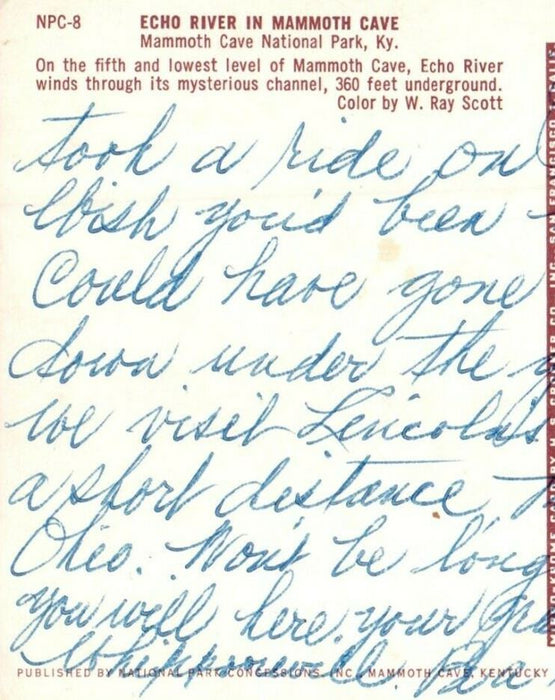 NPC-8 ECHO RIVER IN MAMMOTH CAVE
Mammoth Cave National Park, Ky.
On the fifth and lowest level of Mammoth Cave, Echo River
winds through its mysterious channel, 360 feet underground.
Color by W. Ray Scott
took a ride on
Wish you'd been
Could have gone
down under the
we visit Lincoln's
a short distance
Ohio. Won't be long
you will here your
Whipporwill
PUBLISHED BY NATIONAL PARK CONCESSIONS, INC., MAMMOTH CAVE, KENTUCKY